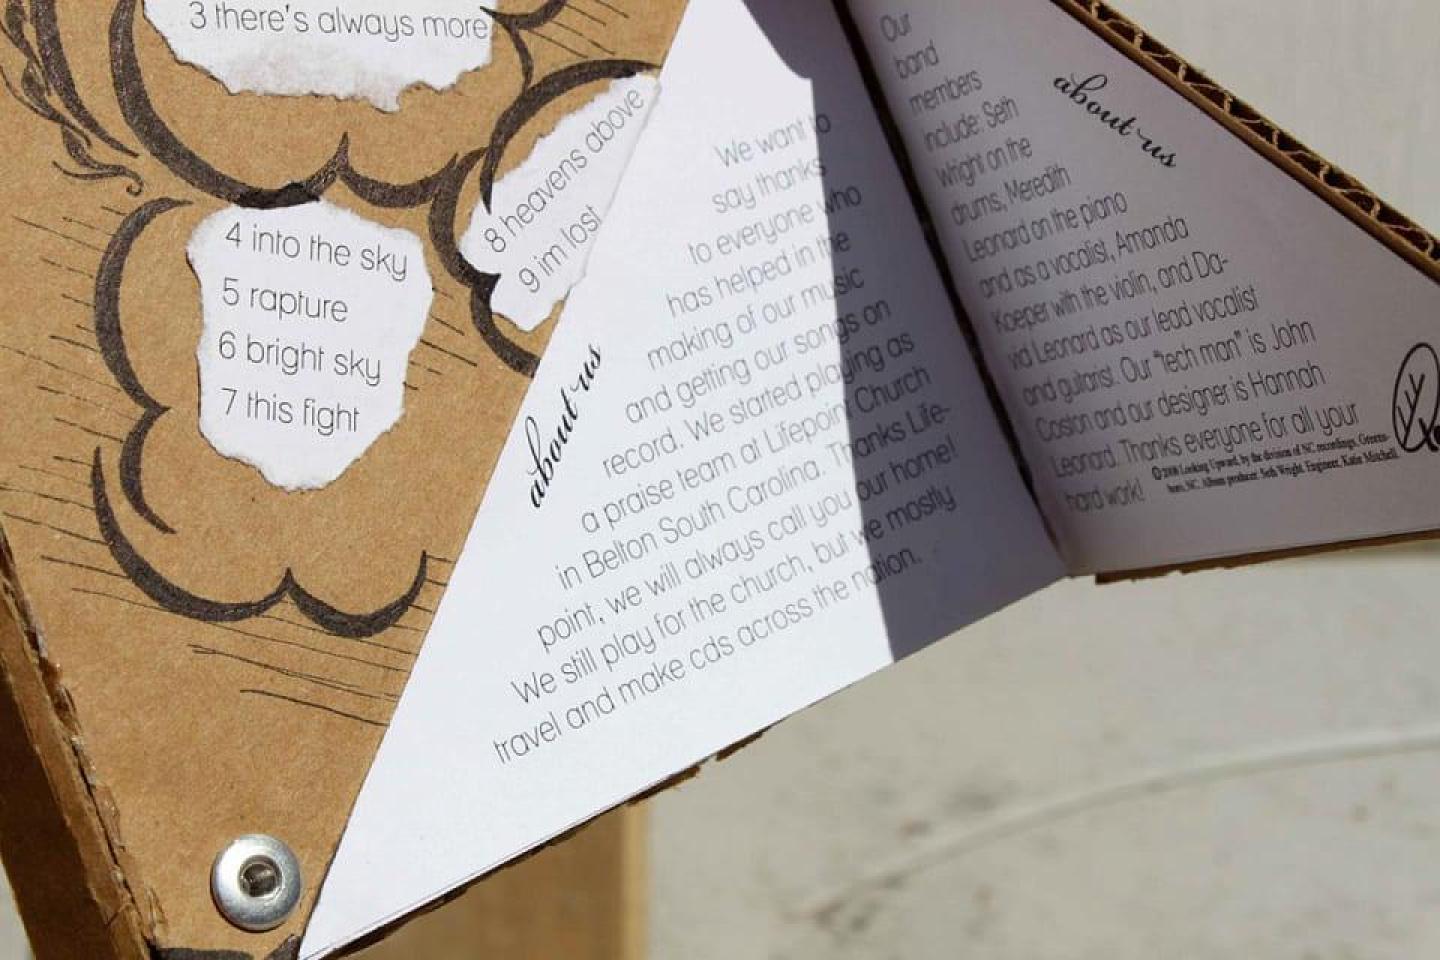 3 there's always more
4 into the sky
5 rapture
6 bright sky
7 this fight
8 heavens above
9 im lost
about us
We want to
say thanks
to everyone who
has helped in the
making of our music
and getting our songs on
record. We started playing as
a praise team at Lifepoint Church
in Belton South Carolina. Thanks Life-
point, we will always call you our home!
We still play for the church, but we mostly
travel and make cds across the nation.
about us
Our
band
members
include: Seth
Wright on the
drums, Meredith
Leonard on the piano
and as a vocalist, Amanda
Koeper with the violin, and Da-
vid Leonard as our lead vocalist
and guitarist. Our "tech man" is John
Coston and our designer is Hannah
Leonard. Thanks everyone for all your
hard work!
©2008 Looking Upward, by the division of NC recordings, Greens-
boro, NC. Album producer: Seth Wright. Engineer, Katie Mitchell